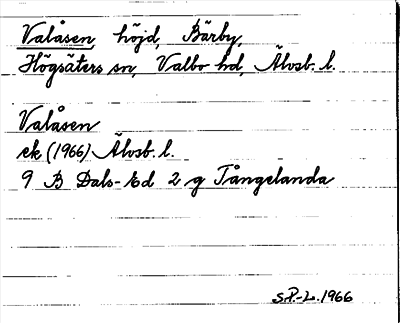 Valåsen, höjd, Bärby,
Högsäters sn, Valbo hd, Älvsb. l.
Valåsen
ek (1966) Älvsb. l.
9 B Dals-Ed 2 g Tångelanda
S.P.-L. 1966